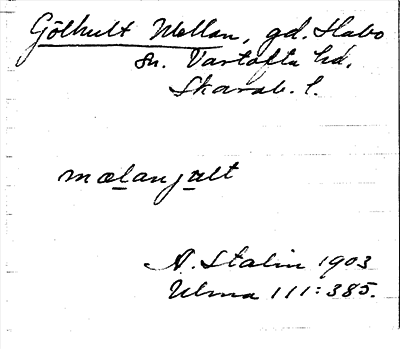 Gölhult Mellan, gd. Habo
sn. Vartofta hd.
Skarab. l.
mælanjult
A. Stalin 1903
Ulma 111:385.